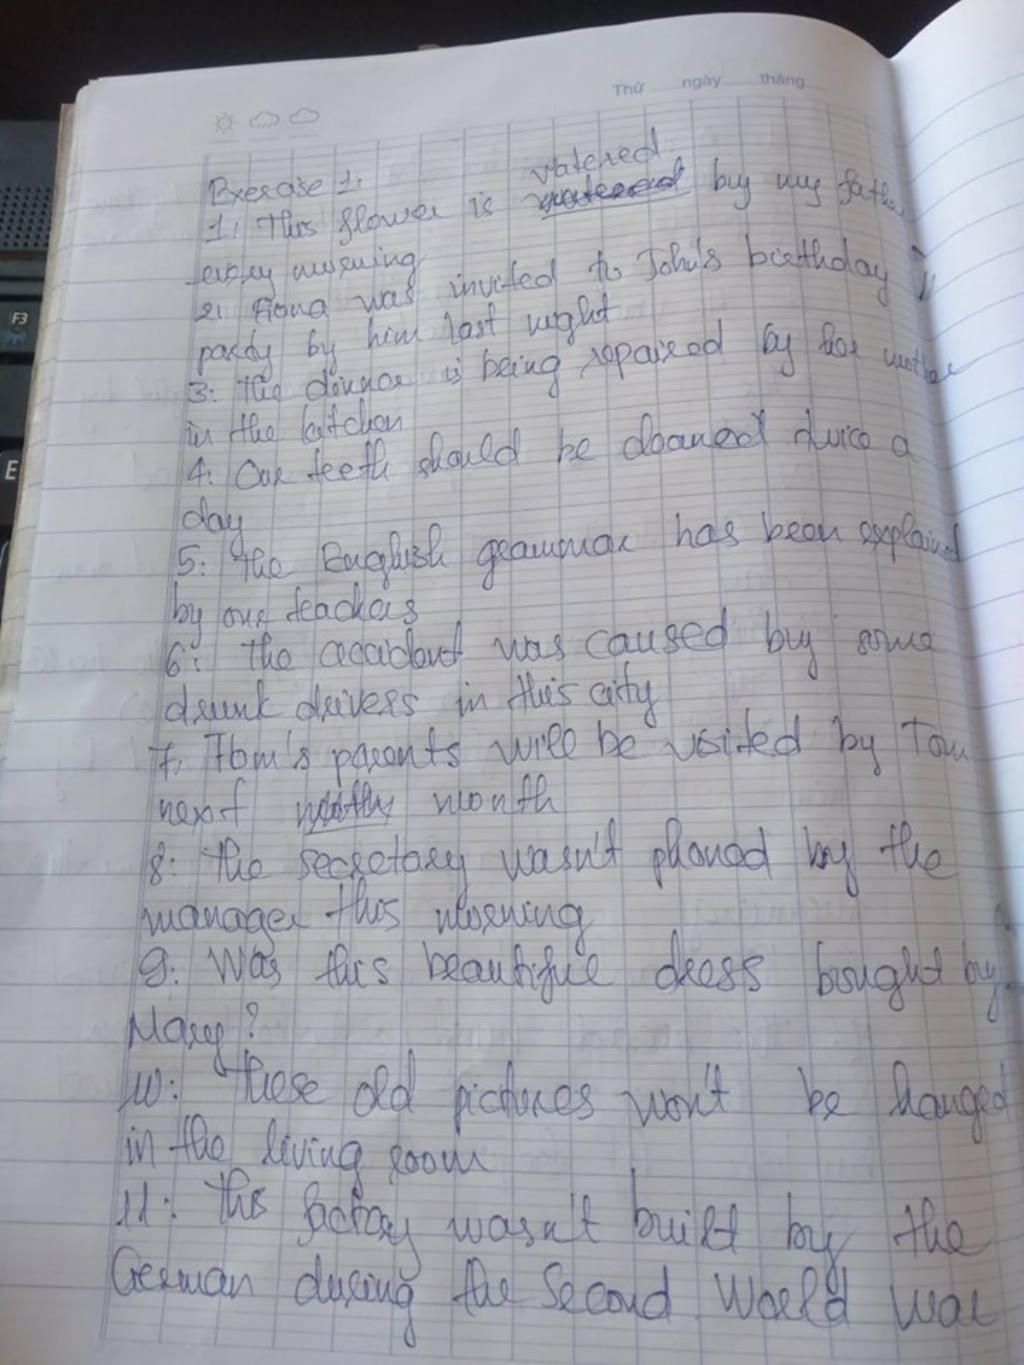 Thứ ngày tháng
Exercise 1:
watered
1: This flower is by my father
every morning
2: Fiona was invited to John's birthday
party by him last night
3: The dinner is being repaired by her mother
in the kitchen
4: Our teeth should be cleaned twice a
day
5: The English grammar has been explained
by our teachers
6: The accident was caused by some
drunk drivers in this city
7: Tom's parents will be visited by Tom
next month
8: The secretary wasn't phoned by the
manager this morning
9: Was this beautiful dress bought by
Mary?
10: These old pictures won't be hanged
in the living room
11: This factory wasn't built by the
German during the Second World War
F3
E